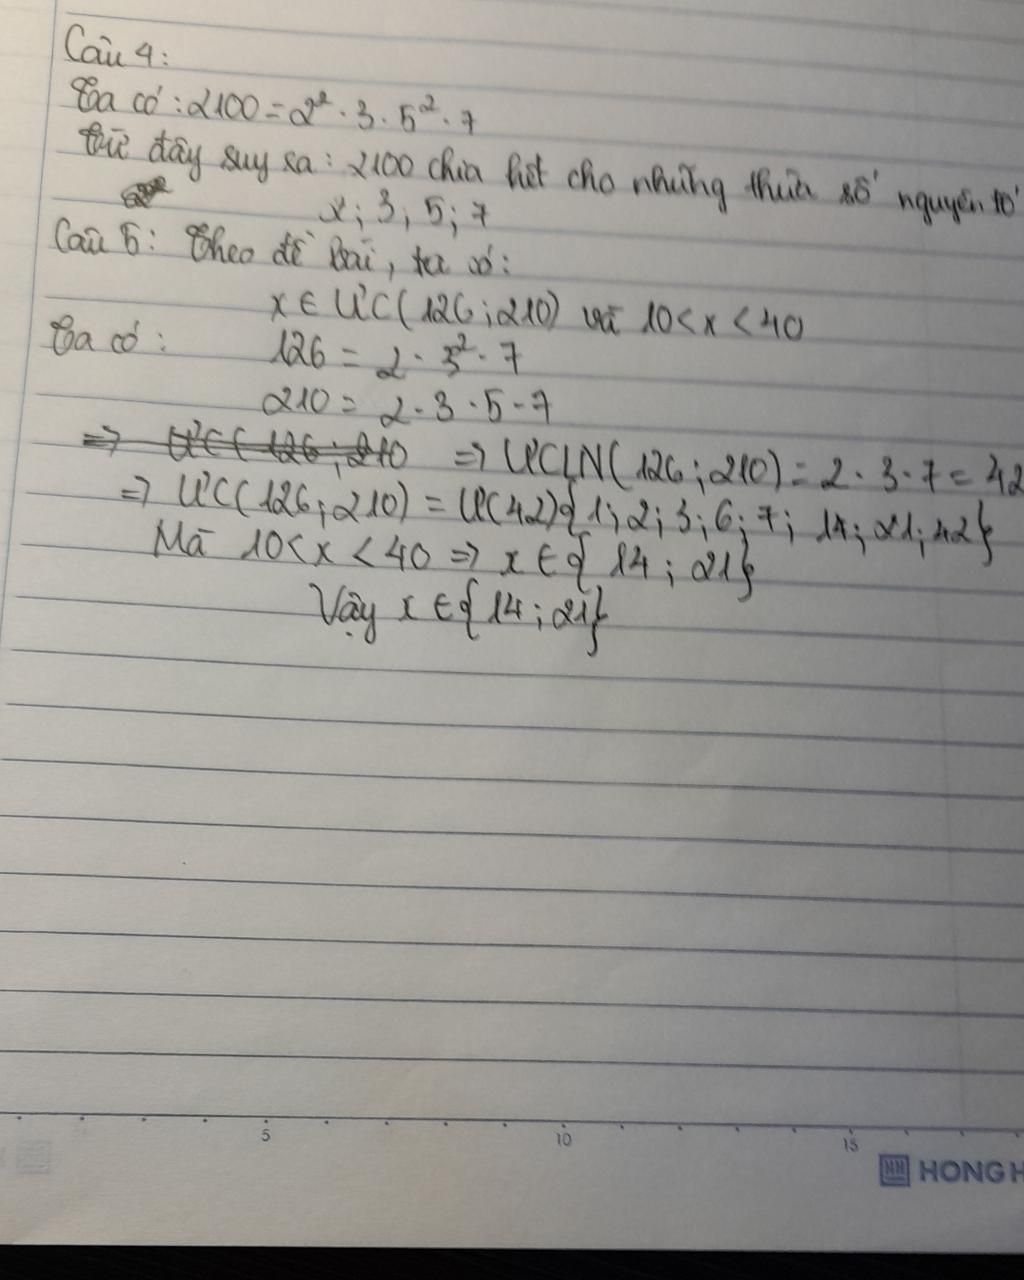 Câu 4:
Ta có: 2100 = 2² . 3 . 5² . 7
Từ đây suy ra: 2100 chia hết cho những thừa số nguyên tố
2; 3; 5; 7
Câu 5: Theo đề bài, ta có:
x ∈ ƯC(126; 210) và 10 < x < 40
Ta có: 126 = 2 . 3² . 7
210 = 2 . 3 . 5 . 7
⇒ ƯC(126; 210 ⇒ ƯCLN(126; 210) = 2 . 3 . 7 = 42
⇒ ƯC(126; 210) = Ư(42){1; 2; 3; 6; 7; 14; 21; 42}
Mà 10 < x < 40 ⇒ x ∈ {14; 21}
Vậy x ∈ {14; 21}
5 10 15
HONG H